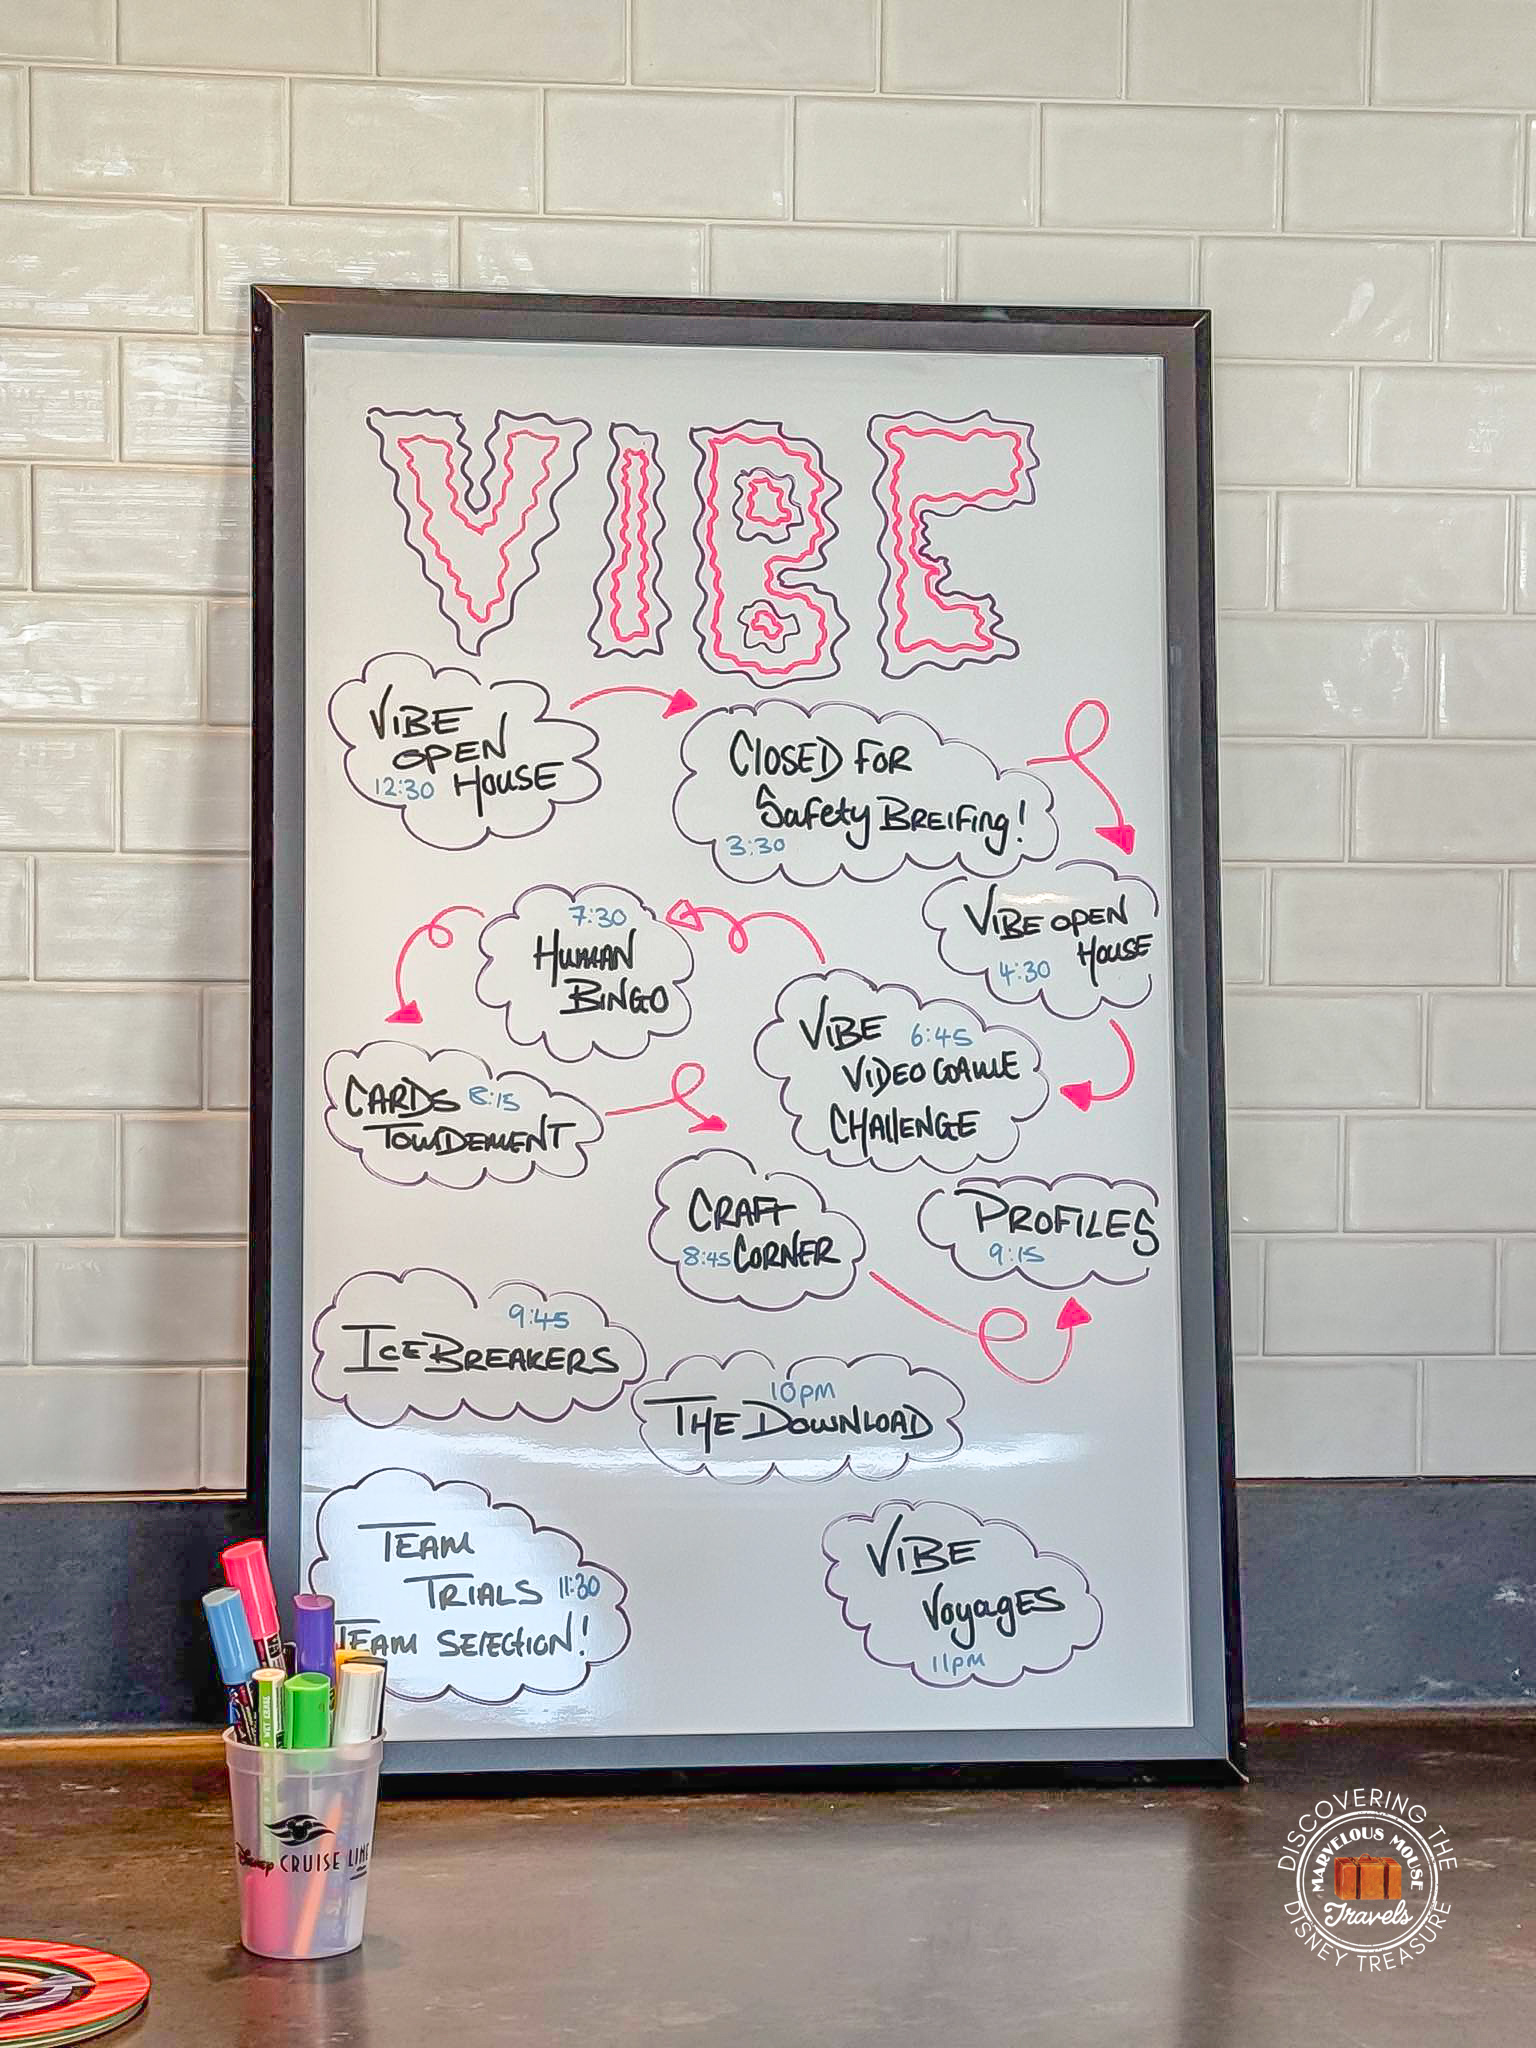 VIBE
VIBE
OPEN
12:30 HOUSE
CLOSED FOR
Safety BREIFING!
3:30
VIBE OPEN
HOUSE
4:30
VIBE 6:45
VIDEO GAME
CHALLENGE
7:30
HUMAN
BINGO
CARDS 8:15
CRAFT
8:45 CORNER
PROFILES
9:15
9:45
ICE BREAKERS
10pm
THE DOWNLOAD
TEAM
TRIALS 11:30
TEAM SELECTION!
VIBE
VoyagES
11pm
WET ERASE
Disney CRUISE LINE
DISCOVERING THE
MARVELOUS MOUSE
Travels
DISNEY TREASURE